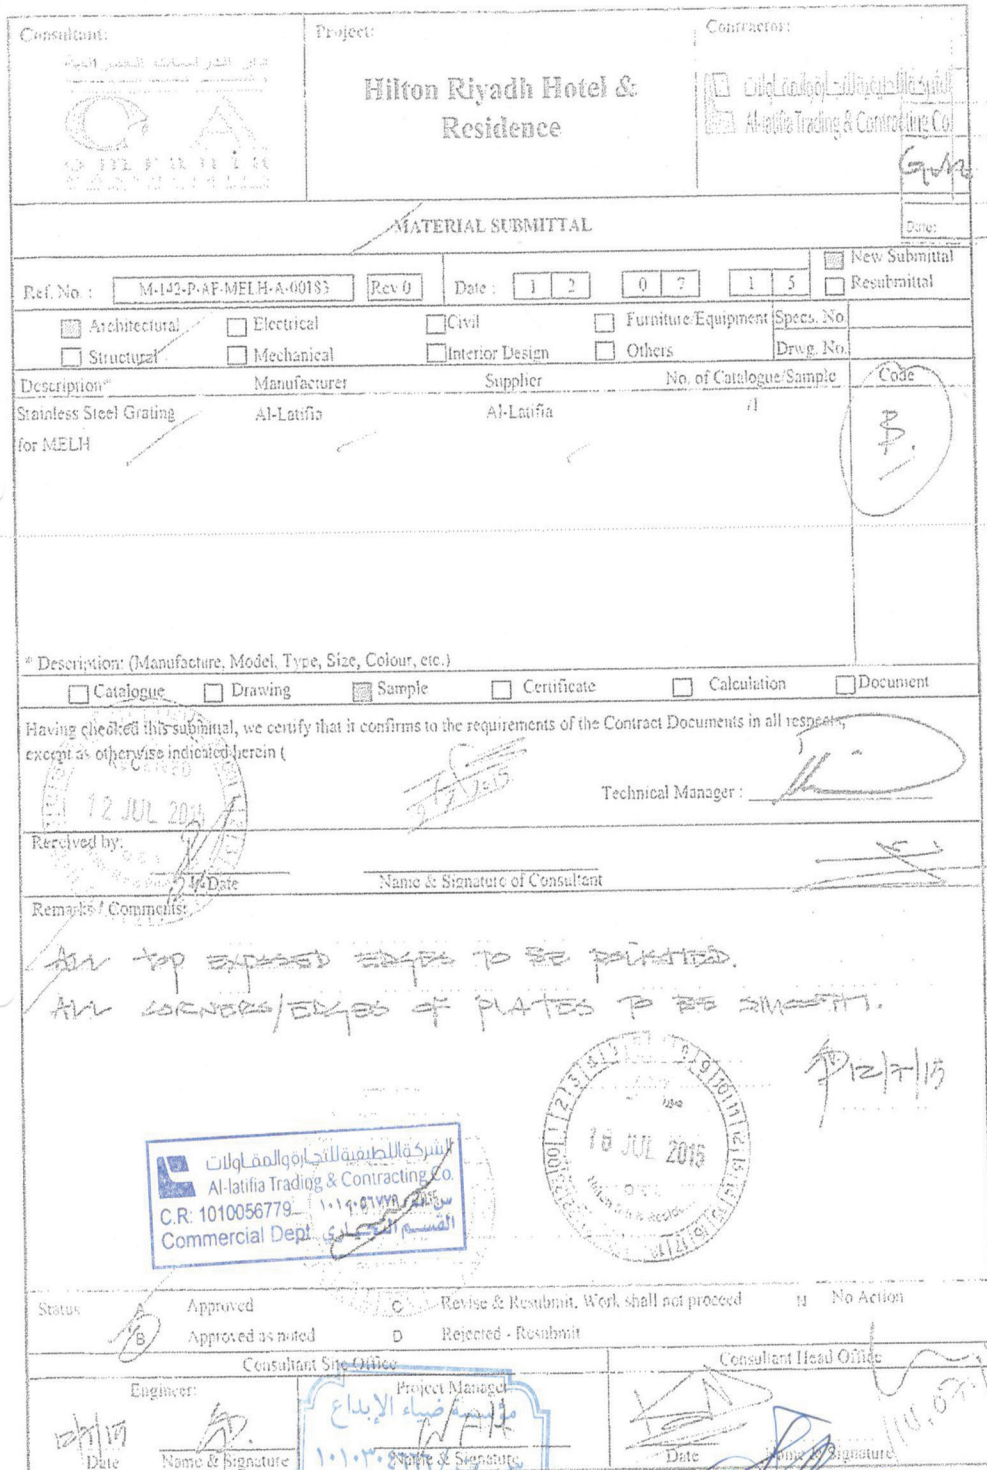 Consultant:
Project:
Contractor:
Hilton Riyadh Hotel &
Residence
الشركة اللطيفية للتجارة والمقاولات
Al-latifia Trading & Contracting Co.
Omrania
G.M
Date:
MATERIAL SUBMITTAL
Ref. No. : M-142-P-AF-MELH-A-00183 Rev 0 Date : 1 2 0 7 1 5
New Submittal
Resubmittal
Architectural Electrical Civil Furniture/Equipment Specs. No
Structural Mechanical Interior Design Others Drwg. No.
Description* Manufacturer Supplier No. of Catalogue/Sample Code
Stainless Steel Grating Al-Latifia Al-Latifia 1 B.
for MELH
* Description: (Manufacture, Model, Type, Size, Colour, etc.)
Catalogue Drawing Sample Certificate Calculation Document
Having checked this submittal, we certify that it confirms to the requirements of the Contract Documents in all respects,
except as otherwise indicated herein (
Technical Manager :
12 JUL
Received by:
Date Name & Signature of Consultant
Remarks / Comments:
ALL TOP EXPOSED EDGES TO BE POLISHED.
ALL CORNERS/EDGES OF PLATES TO BE SMOOTH.
12/7/15
JUL 2015
الشركة اللطيفية للتجارة والمقاولات
Al-latifia Trading & Contracting Co.
C.R: 1010056779
Commercial Dept القسم التجاري
Status A Approved C Revise & Resubmit. Work shall not proceed N No Action
B Approved as noted D Rejected - Resubmit
Consultant Site Office Consultant Head Office
Engineer: Project Manager
مؤسسة ضياء الإبداع
12/7/15
Date Name & Signature Name & Signature Date Name & Signature